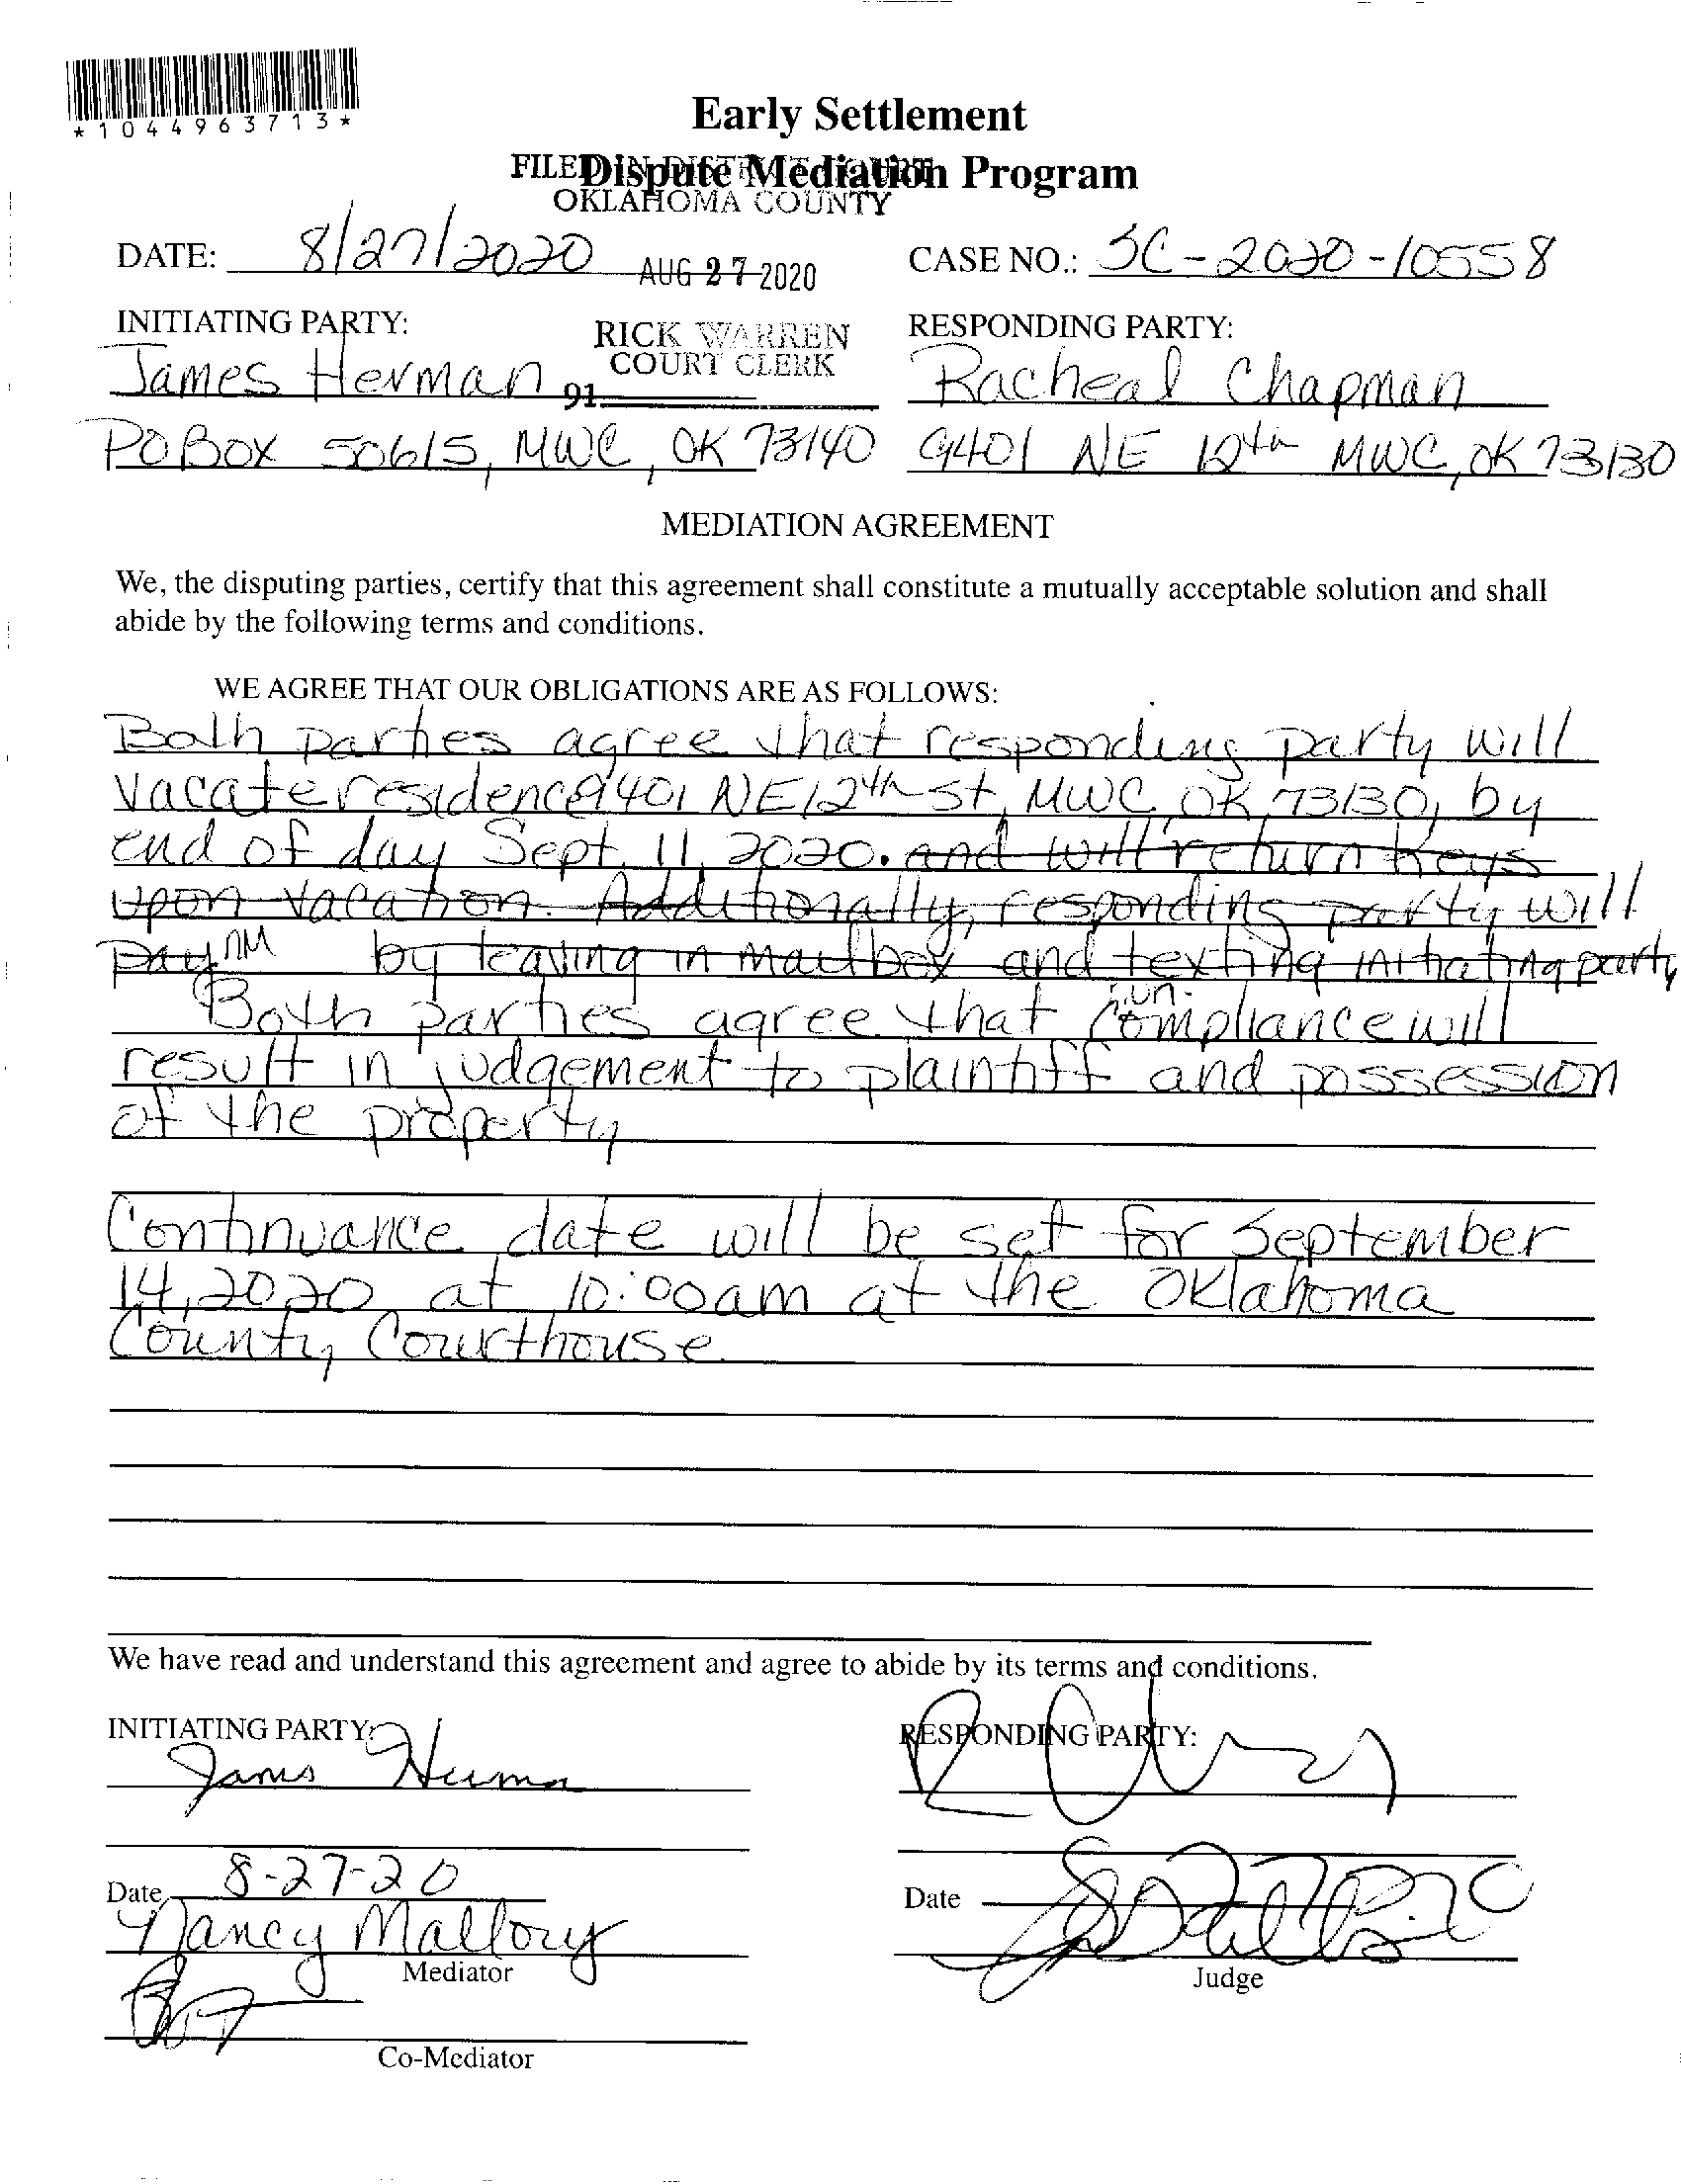 *1044963713*
Early Settlement
Dispute Mediation Program
FILED IN DISTRICT COURT
OKLAHOMA COUNTY
DATE: 8/27/2020 AUG 27 2020 CASE NO.: SC-2020-10558
INITIATING PARTY: RICK WARREN RESPONDING PARTY:
COURT CLERK
James Herman 91 Racheal Chapman
PO BOX 50615, MWC, OK 73140 9401 NE 12th MWC, OK 73130
MEDIATION AGREEMENT
We, the disputing parties, certify that this agreement shall constitute a mutually acceptable solution and shall
abide by the following terms and conditions.
WE AGREE THAT OUR OBLIGATIONS ARE AS FOLLOWS:
Both parties agree that responding party will
vacate residence 9401 NE 12th St, MWC, OK, 73130, by
end of day Sept. 11, 2020. and will return keys
upon vacation. Additionally, responding party will
pay NM by leaving in mailbox and texting initiating party
Both parties agree that compliance will
result in judgement to plaintiff and possession
of the property
Continuance date will be set for September
14, 2020 at 10:00am at the Oklahoma
County Courthouse.
We have read and understand this agreement and agree to abide by its terms and conditions.
INITIATING PARTY: RESPONDING PARTY:
James Herman
Date 8-27-20 Date
Nancy Mallory
Mediator Judge
Co-Mediator